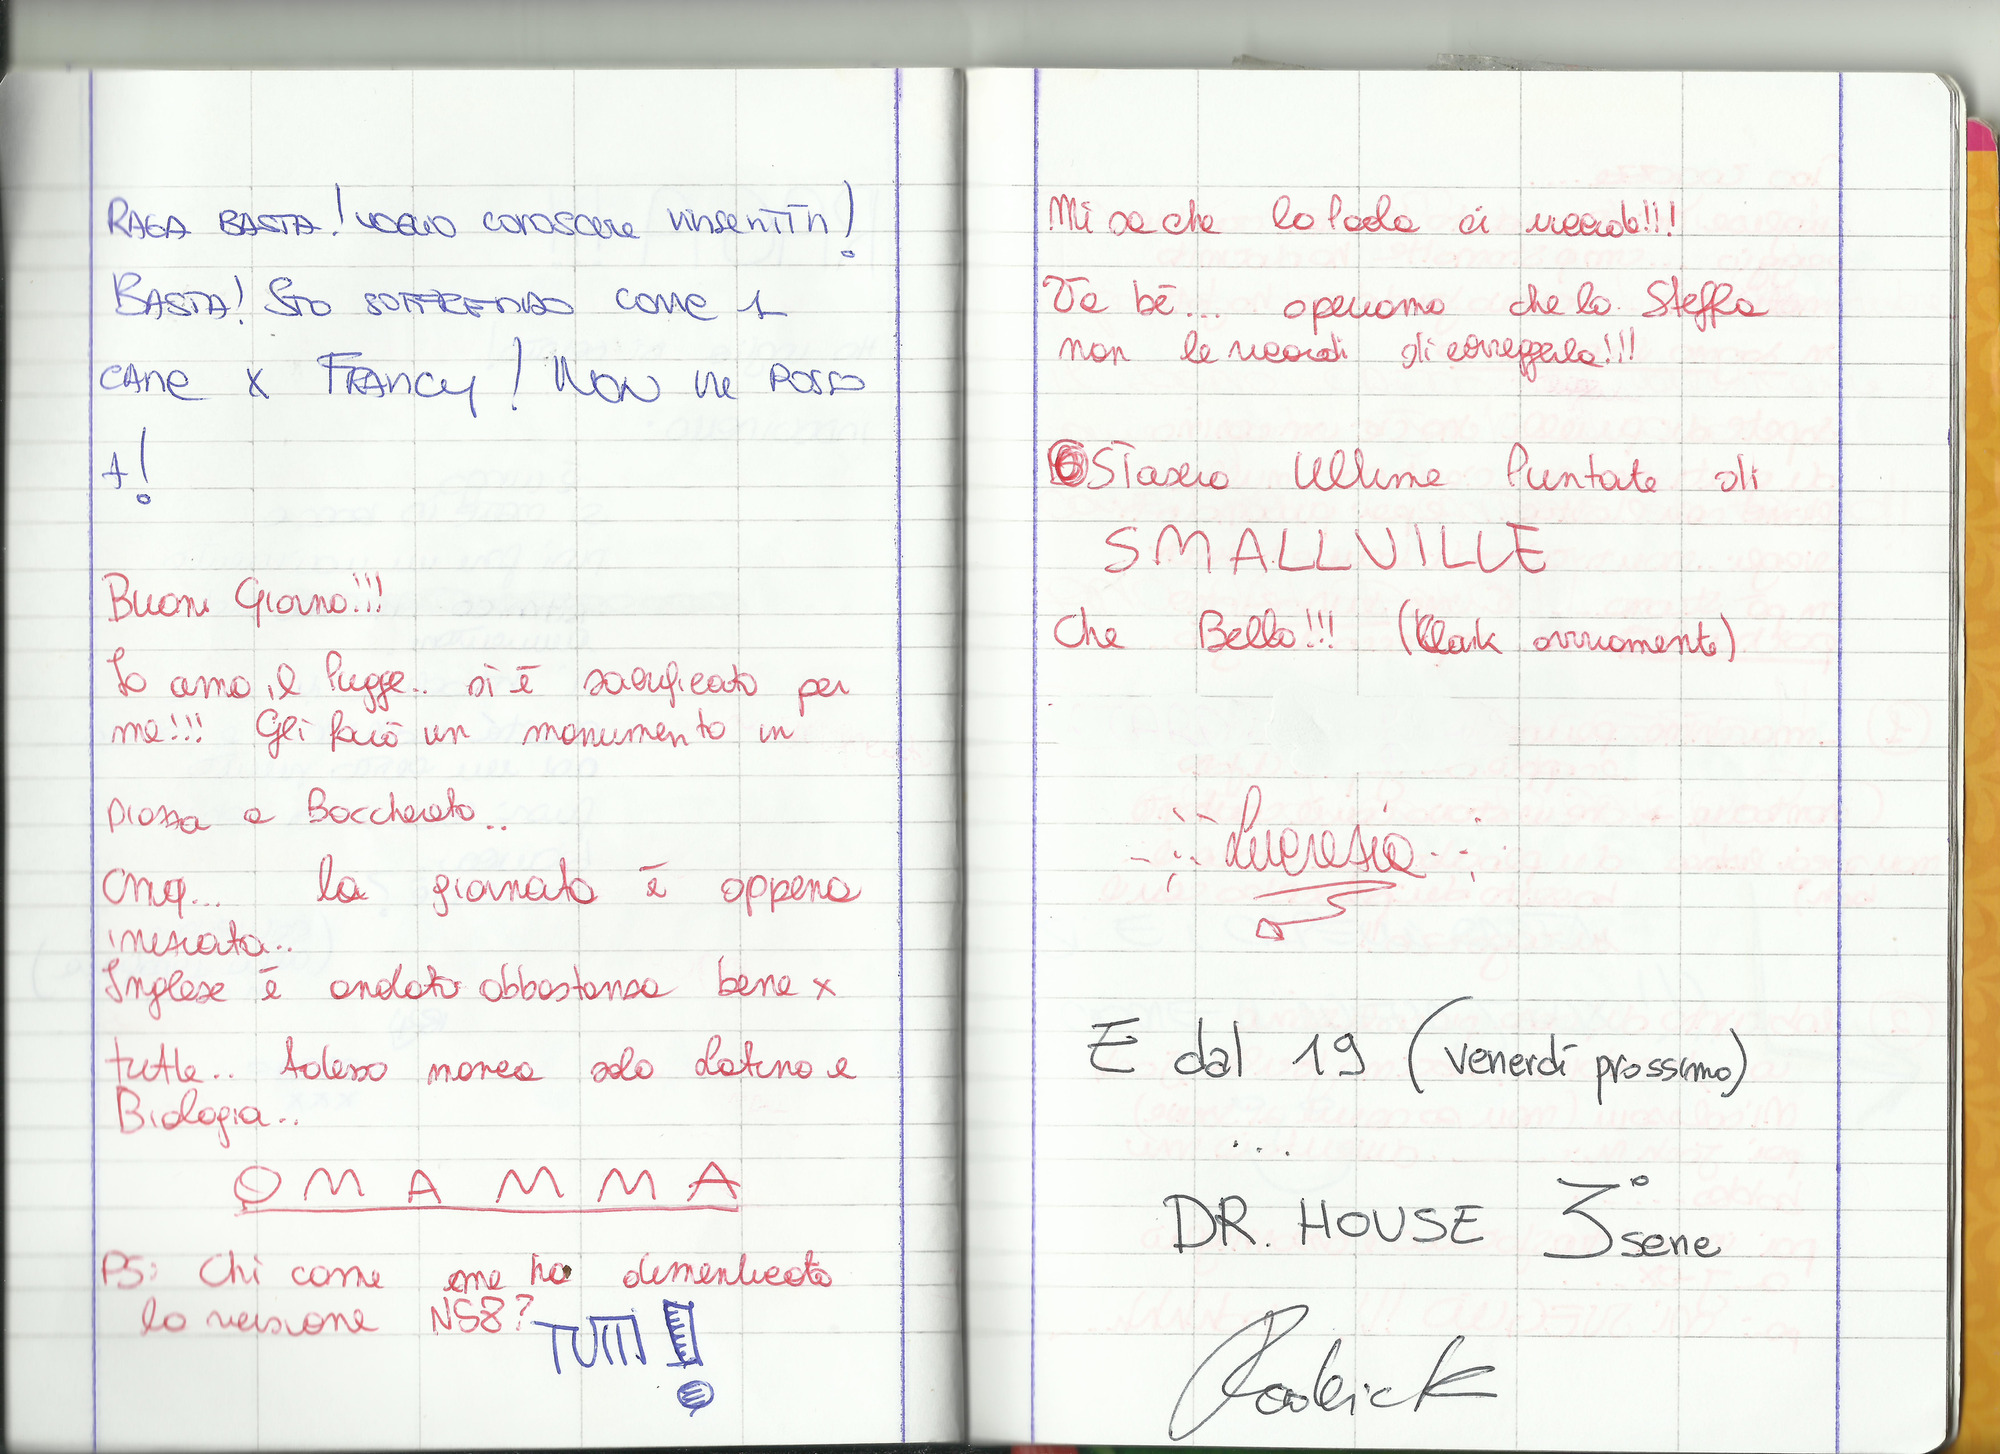 RAGA BASTA! VOGLIO CONOSCERE VINSENTIN!
BASTA! STO SOFFRENDO COME 1
CANE X FRANCY! NON NE POSSO
+!
Buon Giorno!!!
Io amo il Pugge.. si è sacrificato per
me!!! Gli farò un monumento in
piazza a Boccherato..
Cmq... la giornata è appena
iniziata..
Inglese è andato abbastanza bene x
tutte.. Adesso manca solo Latino e
Biologia..
OMAMMA
PS: Chi come me ha dimenticato
la versione N58?
TUTTI!
Mi sa che la Paola ci uccide!!!
Va bè... speriamo che la Steffa
non le ricordi di correggerla!!!
Stasera Ultime Puntate di
SMALLVILLE
Che Bello!!! (Clark ovviamente)
Lucrezia
E dal 19 (venerdì prossimo)
...
DR. HOUSE 3° serie